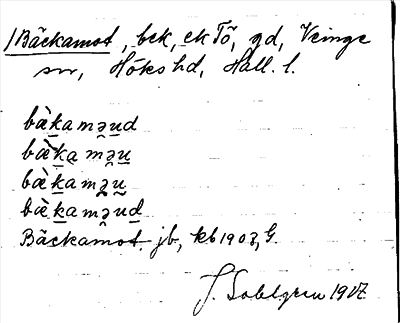 /Bäckamot, bck, ek Tö, gd, Veinge
sn, Höks hd, Hall. l.
bæ̀kaməud
bæ̀kaməu
bæ̀kaməu
bæ̀kaməud
Bäckamot jb, kb 1903, G.
J. Sahlgren 1917